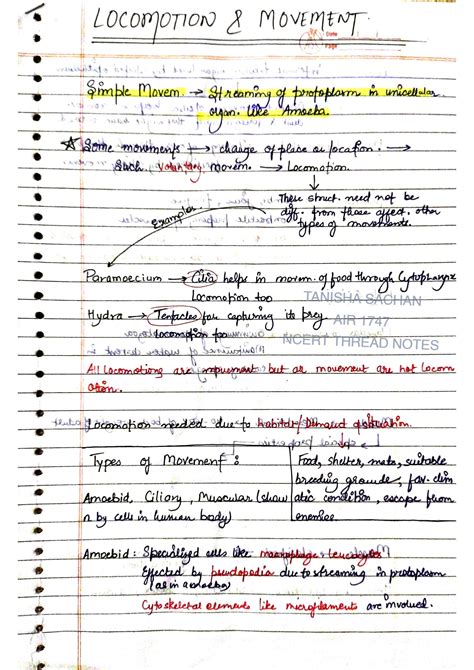 LOCOMOTION & MOVEMENT.
Date
Page
Simple Movem. → Streaming of protoplasm in unicellular
orgn. like Amoeba.
Some movements → change of place or location. →
Such voluntary movem. → Locomotion.
These struct. need not be
diff. from those affect. other
types of movements.
Examples
Paramoecium → Cilia helps in movem. of food through Cytopharynx
Locomotion too
TANISHA SACHAN
Hydra → Tentacles for capturing its prey
AIR 1747
Locomotion too
NCERT THREAD NOTES
All Locomotions are movement but all movement are not Locom
otion.
Locomotion needed due to habitat/Demand of situation.
Types of Movement:
Food, shelter, mate, suitable
breeding grounds, fav. clim
Amoebid, Ciliary, Muscular (show
atic condition, escape from
n by cells in human body)
enemies.
Amoebid: Specialized cells like macrophage & leucocytes
Effected by pseudopodia due to streaming in protoplasm
(as in amoeba)
Cytoskeletal elements like microfilaments are involved.